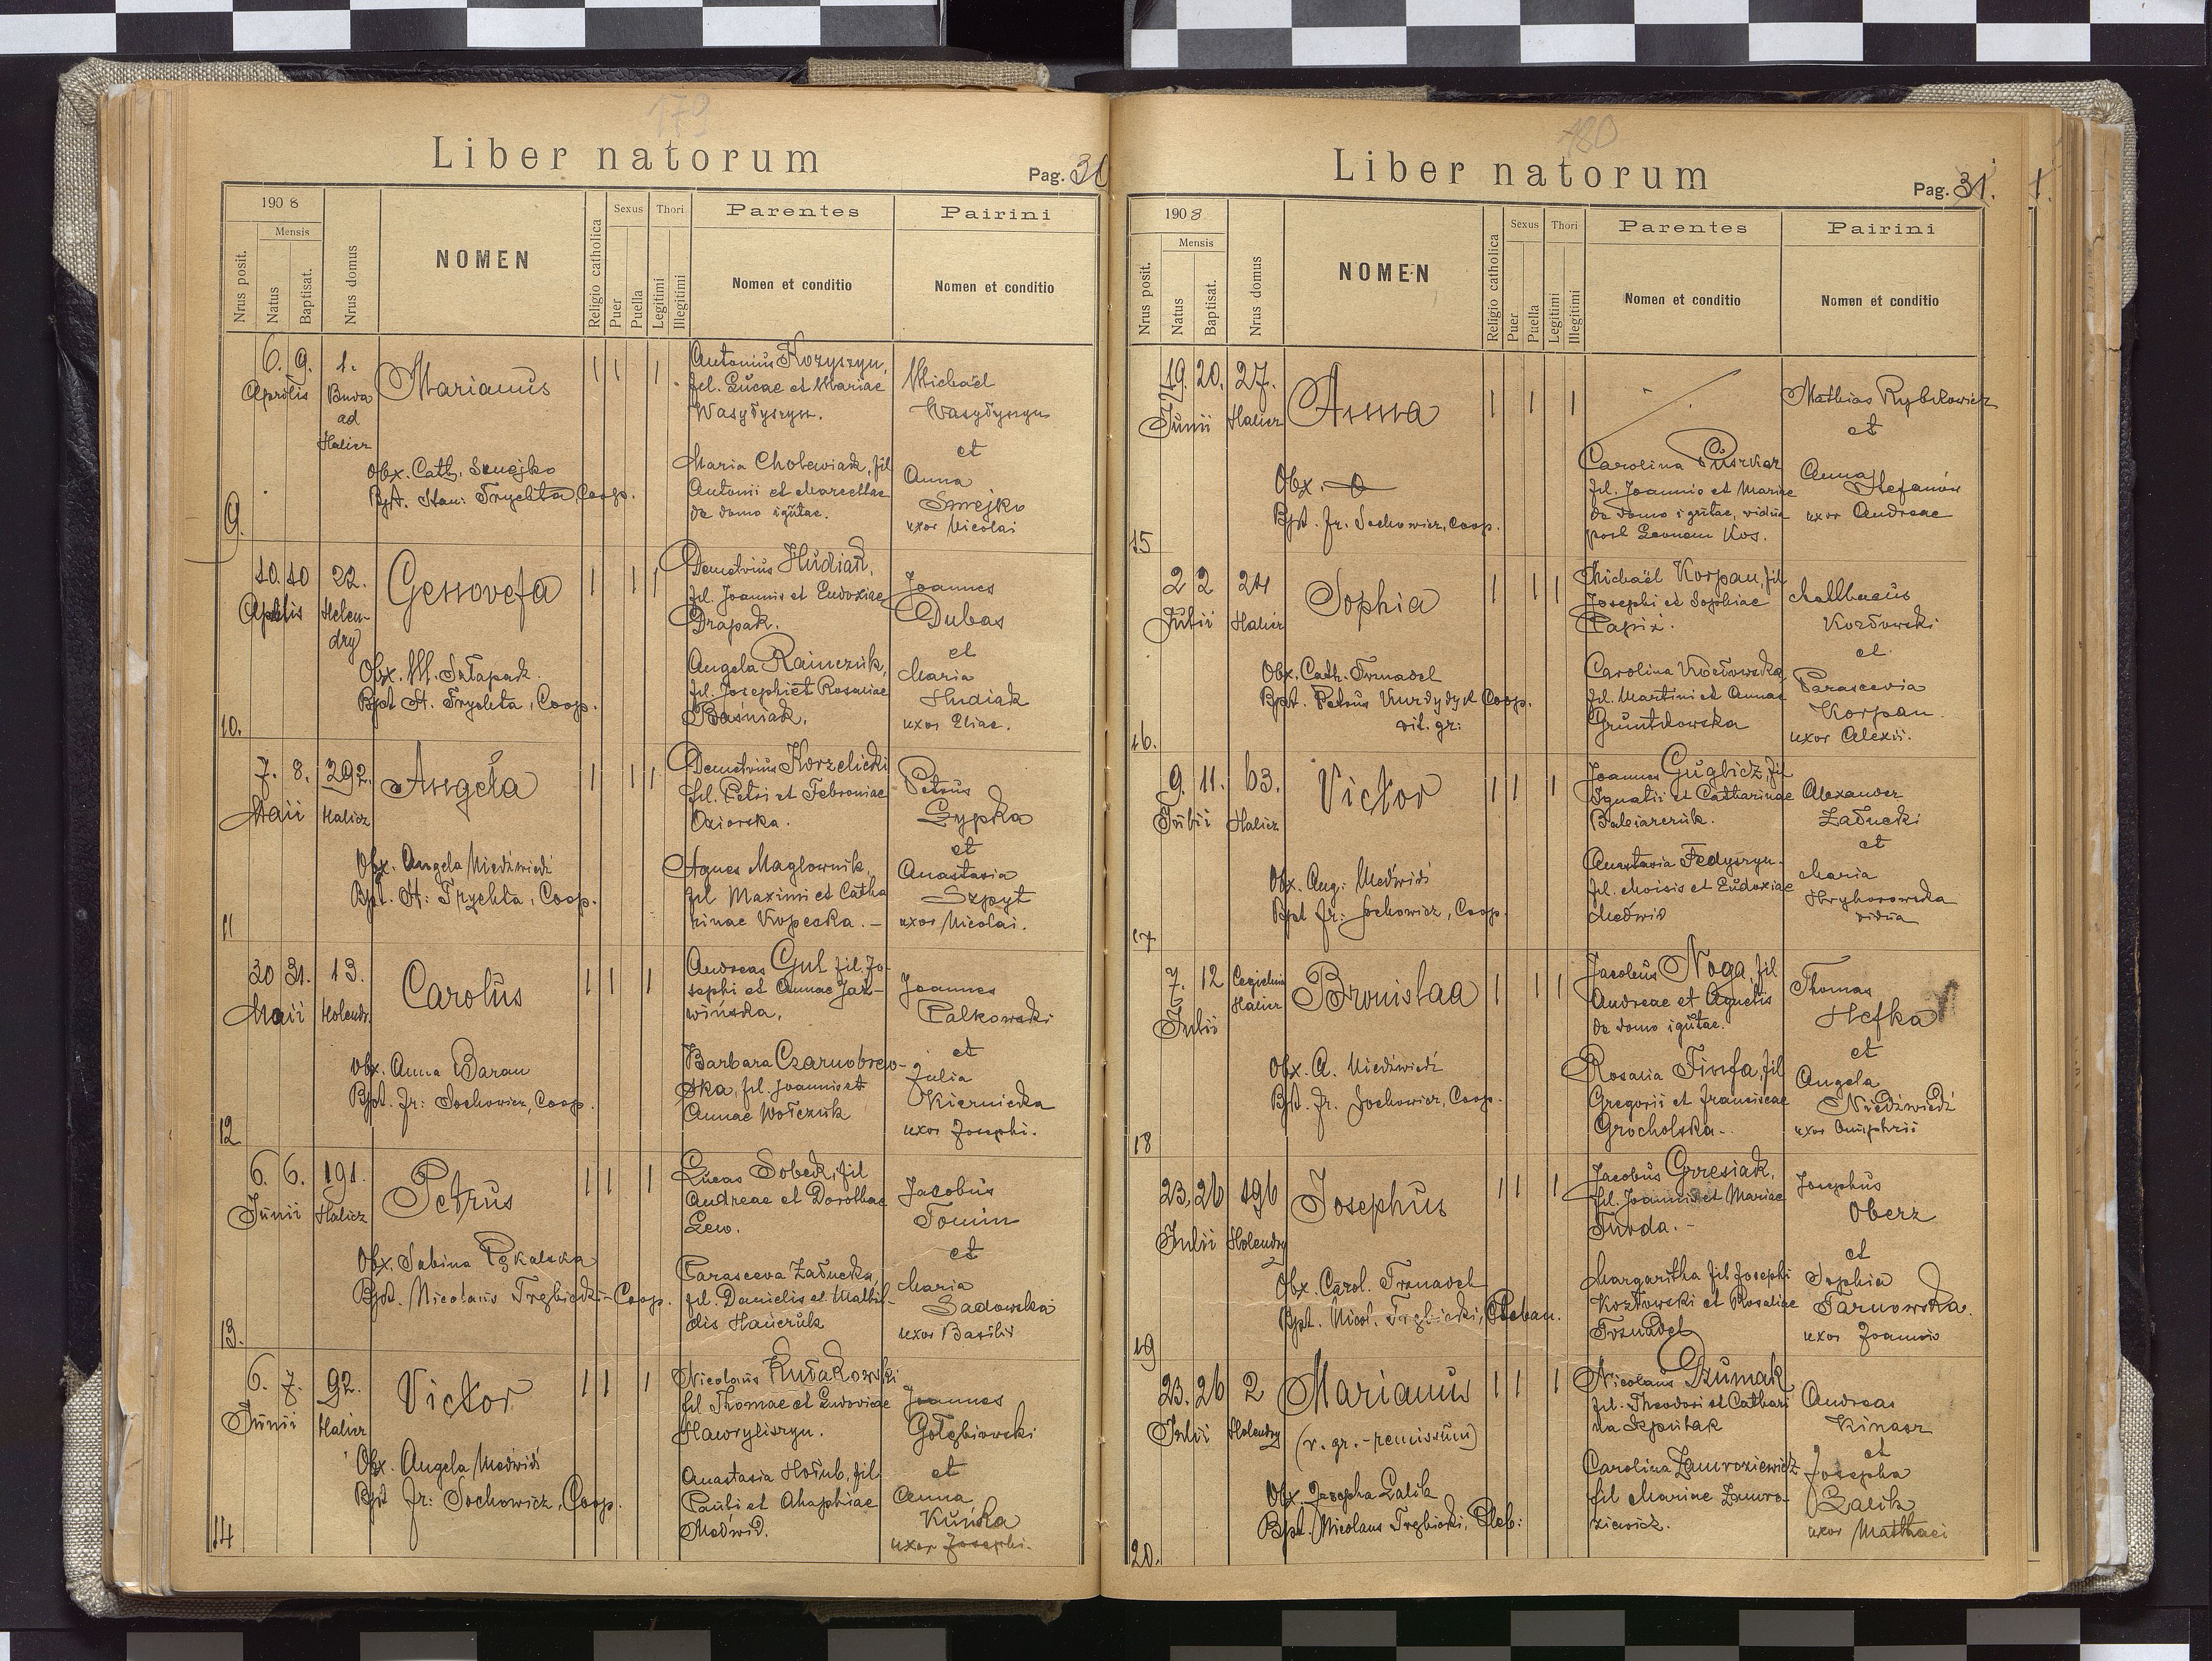 179
Liber natorum
Pag. 30
1908
Mensis
Nrus posit.
Natus
Baptisat.
Nrus domus
NOMEN
Religio catholica
Sexus
Puer
Puella
Thori
Legitimi
Illegitimi
Parentes
Nomen et conditio
Pairini
Nomen et conditio
9.
6. 9.
Aprilis
1.
Buda
ad
Halicz
Marianus
Obx. Cath. Smejko
Bpt. Stan: Trychta, Coop.
Antonius Kozyszyn,
fil. Lucae et Mariae
Wasyłyszyn.
Maria Cholewiak, fil
Antonii et Marcellae
de domo igntae.
Michaël
Wasyłyszyn
et
Anna
Smejko
uxor Nicolai
10.
10. 10
Aprilis
22.
Holen-
dry
Genovefa
Obx. M. Sałapak.
Bpt St. Trychta, Coop.
Demetrius Hudiak,
fil. Joannis et Eudoxiae
Drapak.
Angela Rainczuk,
fil. Josephi et Rosaliae
Baśniak.
Joannes
Dubas
et
Maria
Hudiak
uxor Eliae.
11
7. 8.
Maii
292.
Halicz
Angela
Obx. Angela Niedźwiedź
Bpt. St: Trychta, Coop.
Demetrius Korzelicki
fil. Petri et Febroniae
Oziorska.
Agnes Maglownik,
fil Maximi et Catha
rinae Kopecka. –
Petrus
Gypka
et
Anastasia
Szpyt
uxor Nicolai.
12
30 31.
Maii
13.
Holendr.
Carolus
Obx. Anna Baran
Bpt. Fr: Sochowicz, Coop.
Andreas Gul fil. Jo-
sephi et Annae Jaz-
wińska.
Barbara Czarnobrew-
ska, fil. Joannis et
Annae Wołczuk
Joannes
Palkowski
et
Julia
Kiernicka
uxor Josephi.
13.
6. 6.
Junii
191.
Halicz
Petrus
Obx. Sabina Pękalska
Bpt. Nicolaus Trębicki – Coop.
Lucas Sobek, fil
Andreae et Dorotheae
Lew.
Parasceva Załucka,
fil. Danielis et Mathil-
dis Hauczuk
Jacobus
Tomin
et
Maria
Sadowska
uxor Basilii
14
6. 7.
Junii
92.
Halicz
Victor
Obx. Angela Medwidź
Bpt Fr: Sochowicz, Coop.
Nicolaus Kułakowski
fil Thomae et Ludovicae
Hawryliszyn.
Anastasia Hołub, fil.
Pauli et Ahaphiae
Medwid.
Joannes
Gołębiowski
et
Anna
Kuńka
uxor Josephi.
180
Liber natorum
Pag. 31.
1908
Mensis
Nrus posit.
Natus
Baptisat.
Nrus domus
NOMEN
Religio catholica
Sexus
Puer
Puella
Thori
Legitimi
Illegitimi
Parentes
Nomen et conditio
Pairini
Nomen et conditio
15
19. 20.
Junii
27.
Halicz
Anna
Obx.
Bpt. Fr. Sochowicz, Coop.
Carolina Puszkar
fil. Joannis et Mariae
de domo igntae, vidua
post Leonem Kos.
Mathias Rybkowicz
et
Anna Stefanów
uxor Andreae
16.
2 2
Julii
24
Halicz
Sophia
Obx. Cath. Trznadel
Bpt. Petrus Coop.
rit. gr:
Michaël Korpan, fil
Josephi et Sophiae
Papiż.
Carolina Kozłowska
fil. Martini et Annae
Gruntkowska
Matthaeus
Kozłowski
et
Parascevia
Korpan.
uxor Alexii.
17
9. 11.
Julii
63.
Halicz
Victor
Obx. Ang: Medwidź
Bpt Fr: Sochowicz, Coop.
Joannes Guglicz, fil
Ignatii et Catharinae
Anastasia Fedyszyn.
fil. Moisis et Eudoxiae
Medwid
Alexander
Załucki
et
Maria
Hryhorowska
vidua
18
7. 12
Julii
Cegielnia
Halicz
Bronislaa
Obx. A. Niedźwiedź
Bpt. Fr. Sochowicz, Coop.
Jacobus Noga, fil
Andreae et Agnetis
de domo igntae.
Rosalia Finfa, fil
Gregorii et Franciscae
Grocholska –
Thomas
Hefka
et
Angela
Niedźwiedź
uxor Onuphrii
19
23. 26
Julii
196
Holendry
Josephus
Obx. Carol. Trznadel
Bpt. Nicol. Trębicki, Pleban.
Jacobus Grzesiak,
fil. Joannis et Mariae
Furda. –
Margaritha fil Josephi
Kozłowski et Rosaliae
Trznadel
Josephus
Oberz
et
Sophia
Tarnowska.
uxor Joannis
20.
23. 26
Julii
2
Holendry
Marianus
(r. gr. – remissum)
Obx. Josepha Galik
Bpt. Nicolaus Trębicki, Pleb:
Nicolaus Dżumak
fil. Theodori et Cathari
na Szpultak
Carolina Zamroziewicz
fil Mariae Zamro-
ziewicz.
Andreas
Kinasz
et
Josepha
Galik
uxor Matthaei